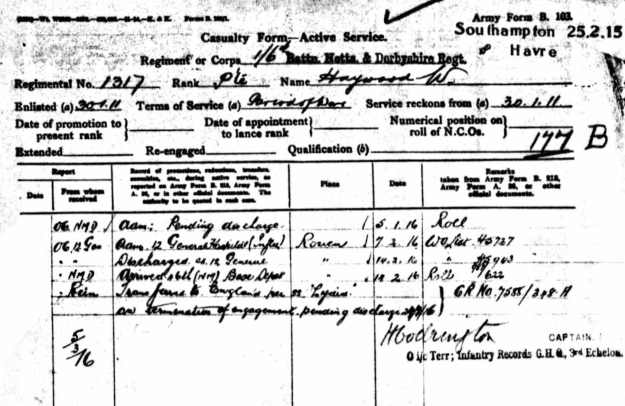 Army Form B. 103.
Casualty Form—Active Service.
Southampton 25.2.15
& Havre
Regiment or Corps 1/6th Battn. Notts. & Derbyshire Regt.
Regimental No. 1317 Rank Pte Name Haywood W.
Enlisted (a) 30.1.11 Terms of Service (a) Service reckons from (a) 30.1.11
Date of promotion to present rank Date of appointment to lance rank Numerical position on roll of N.C.Os.
177 B
Extended Re-engaged Qualification (b)
Report
Date From whom received
Record of promotions, reductions, transfers, casualties, etc., during active service, as reported on Army Form B. 213, Army Form A. 36, or in other official documents. The authority to be quoted in each case.
Place
Date
Remarks taken from Army Form B. 213, Army Form A. 36, or other official documents.
Adm: Pending discharge. 5.1.16 Roll
Adm. 12 General Hospital Rouen 7.2.16
Discharged " 14.2.16 "
NMD Arrived (NM) Base Depot " 18.2.16 Rolls
to England per ss "Lydia"
on termination of engagement, pending discharge
5/3/16
CAPTAIN.
O i/c Terr; Infantry Records G.H.Q., 3rd Echelon.